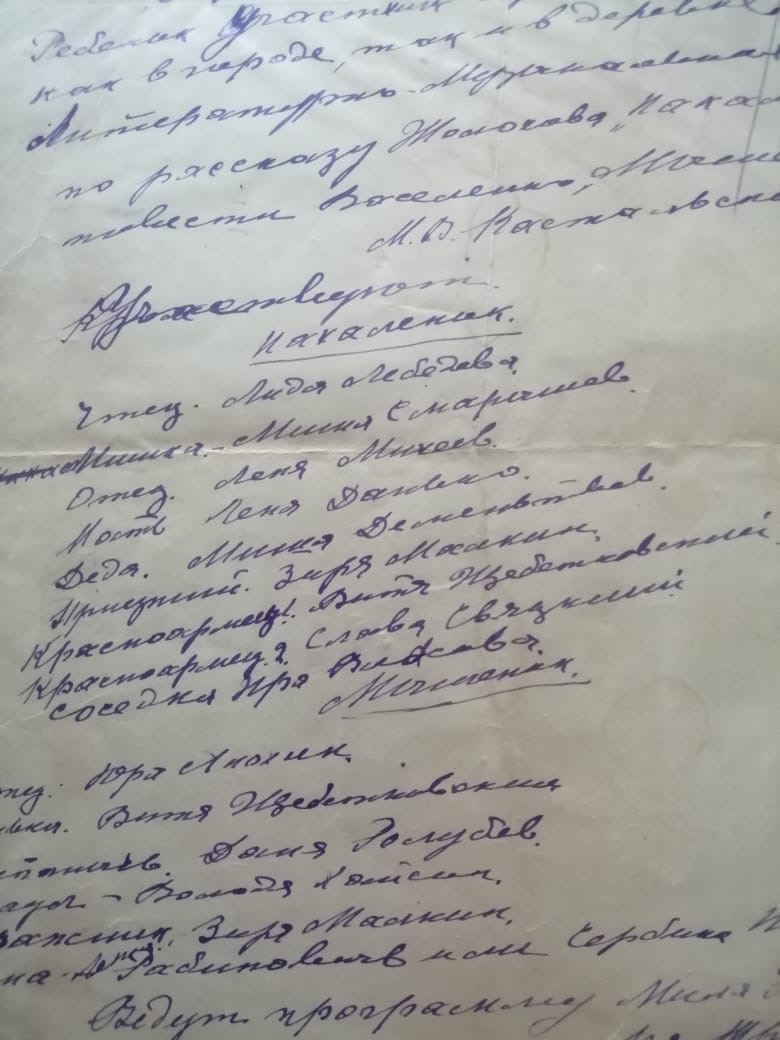 Ребенок участник
как в городе, так и в деревне
Литературно-Музыкальная
по рассказу Шолохова „Нахал
повести Василенко „Мышен
М. В. Кастальск
Участвуют.
Нахаленок.
Чтец. Лида Лебедева.
Мишка - Миша Смарышев.
Отец. Леня Михеев.
Мать Леня Данько.
Деда. Миша Дементьев.
Приезжий. Заря Малкин.
Красноармеец 1. Витя Щебетковский
Красноармеец 2. Слава Свяцкий
Соседка Ира Власова.
Мышенок.
тец. Юра Анохин.
Витя Щебетковский
Даня Голубев.
Володя
Заря Малкин.
на - Рабинович или Щербина
Ведут программу Миля